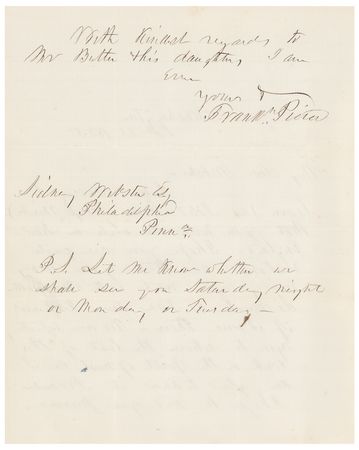 With Kindest regards to
Mr Butler & his daughters, I am
Ever
Yours &
Frankn. Pierce
Sidney Webster Esq
Philadelphia
Penna.
P.S. Let me Know whether we
shall see you Saturday night
or Monday or Tuesday —